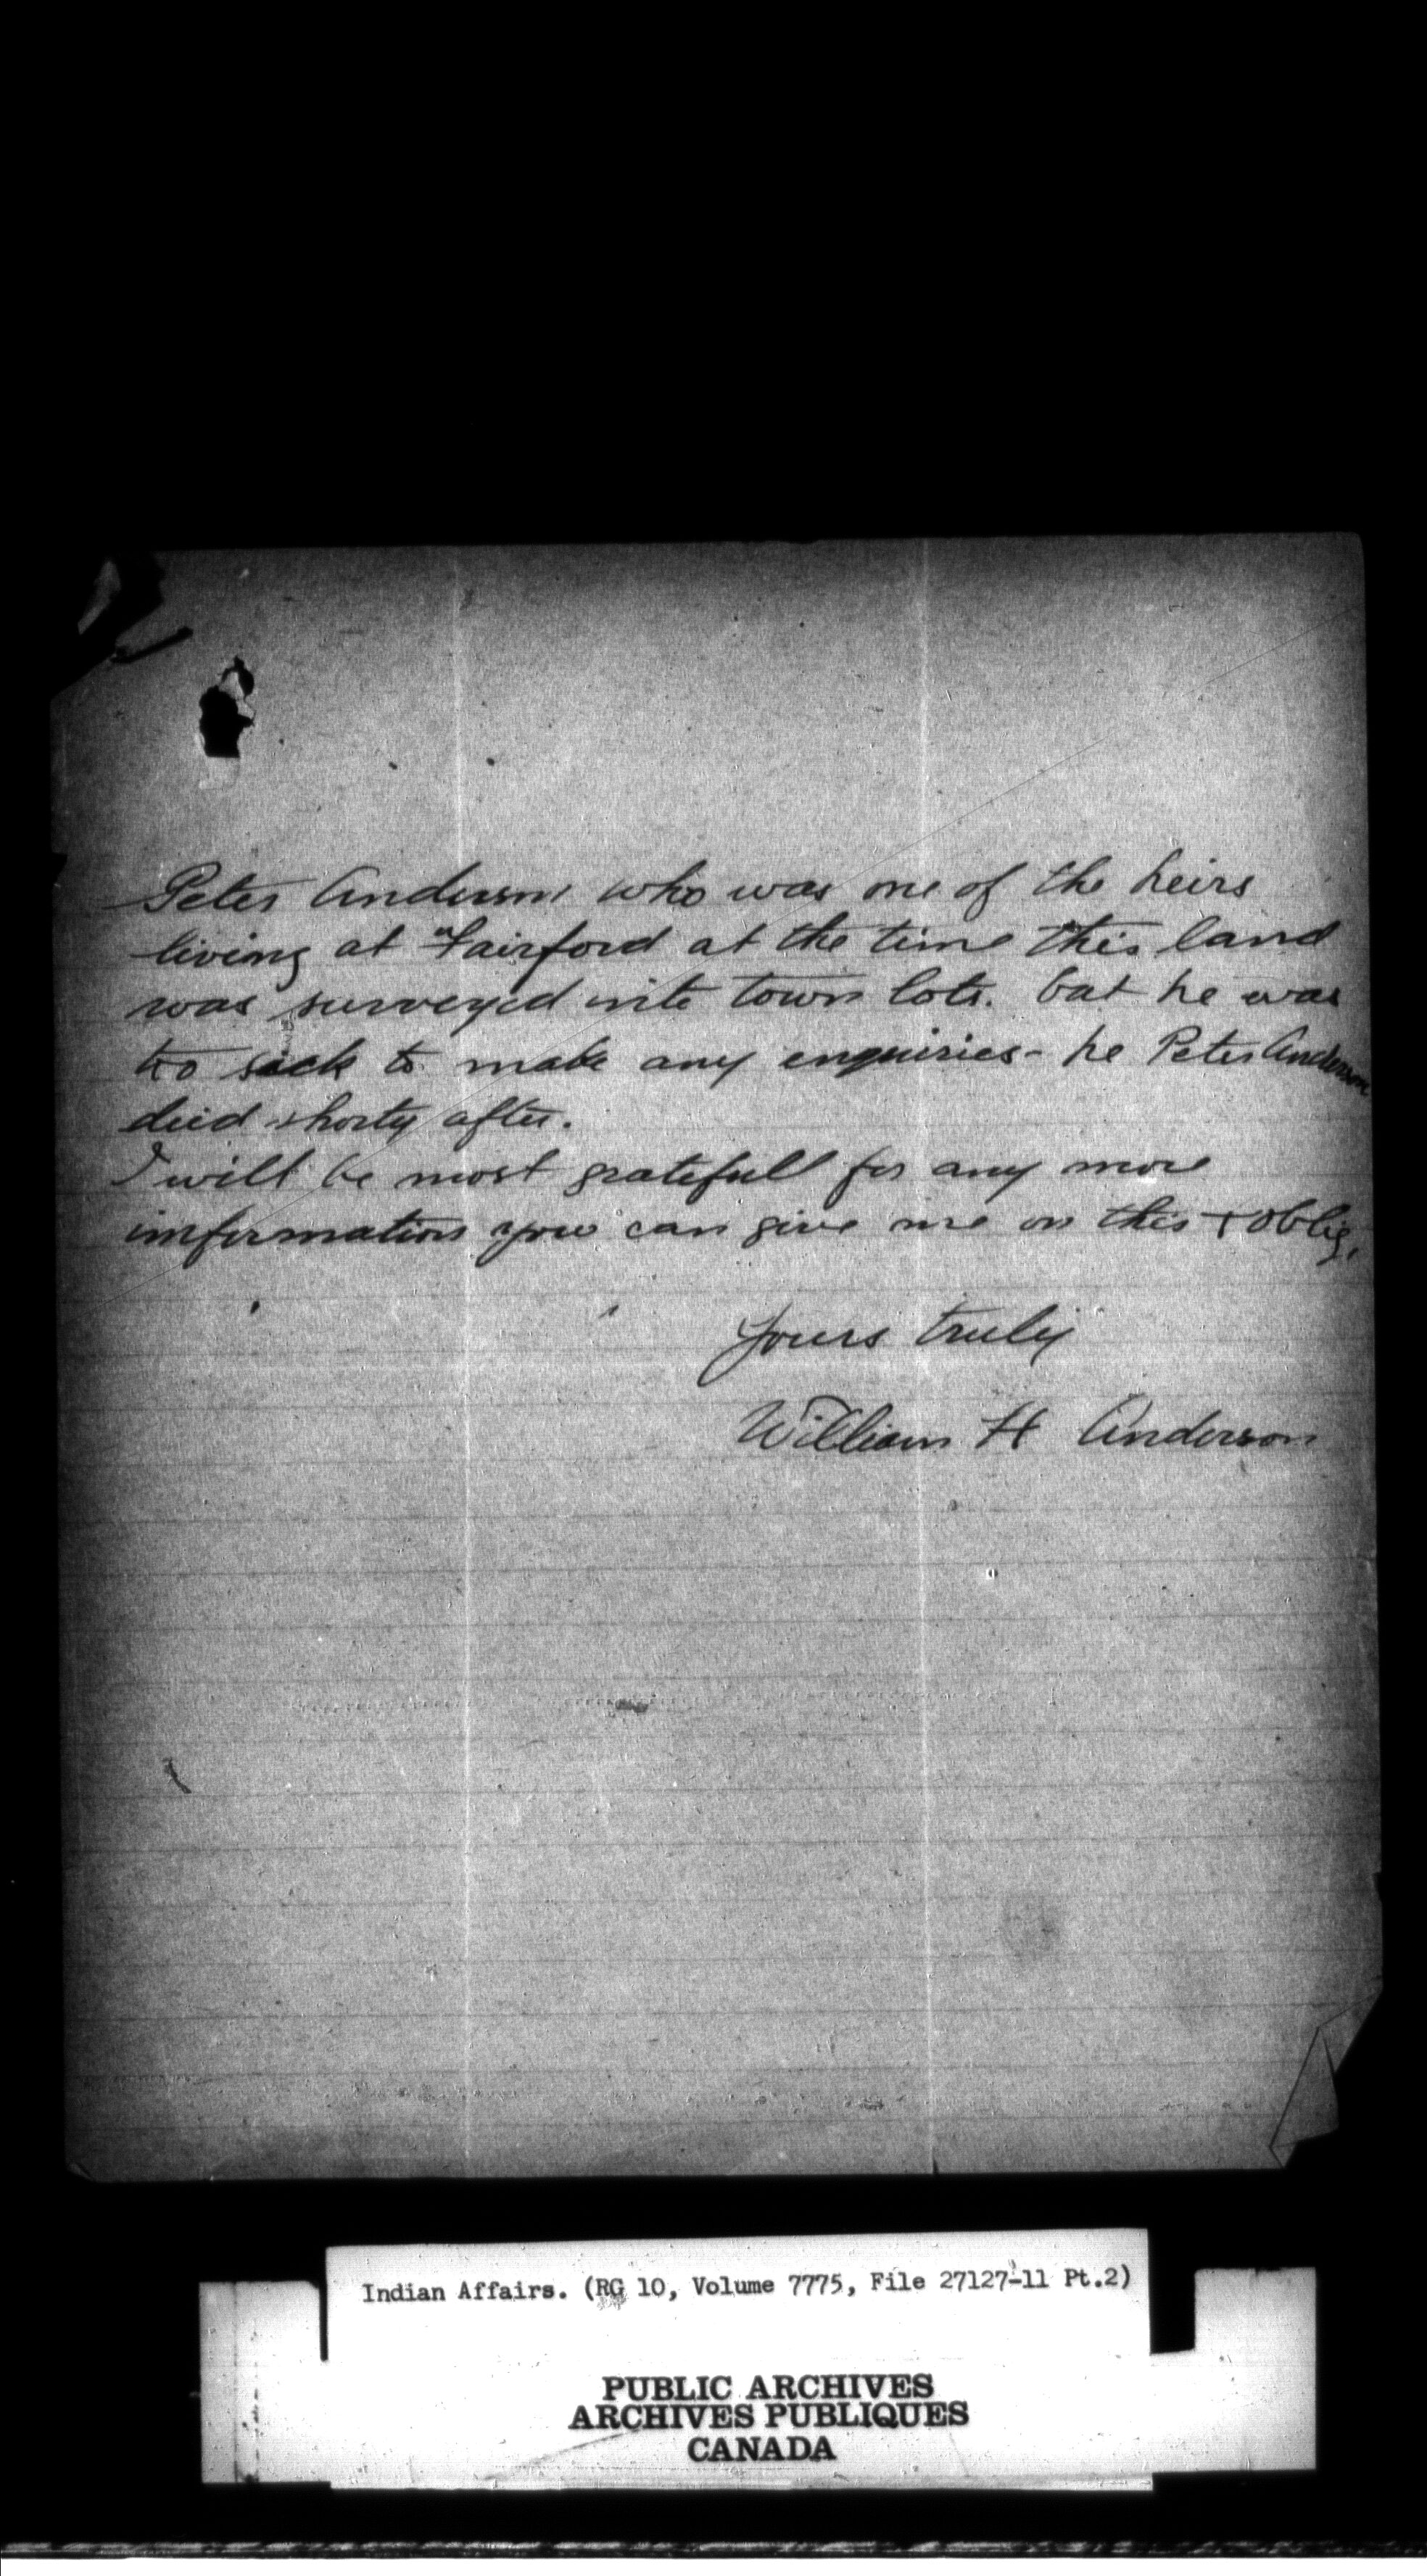 Peter Anderson who was one of the heirs
living at Fairford at the time this land
was surveyed into town lots. but he was
too sick to make any enquiries - he Peter Anderson
died shorty after.
I will be most gratefull for any more
information you can give me on this + oblig.
Yours truly
William H Anderson
Indian Affairs. (RG 10, Volume 7775, File 27127-11 Pt.2)
PUBLIC ARCHIVES
ARCHIVES PUBLIQUES
CANADA